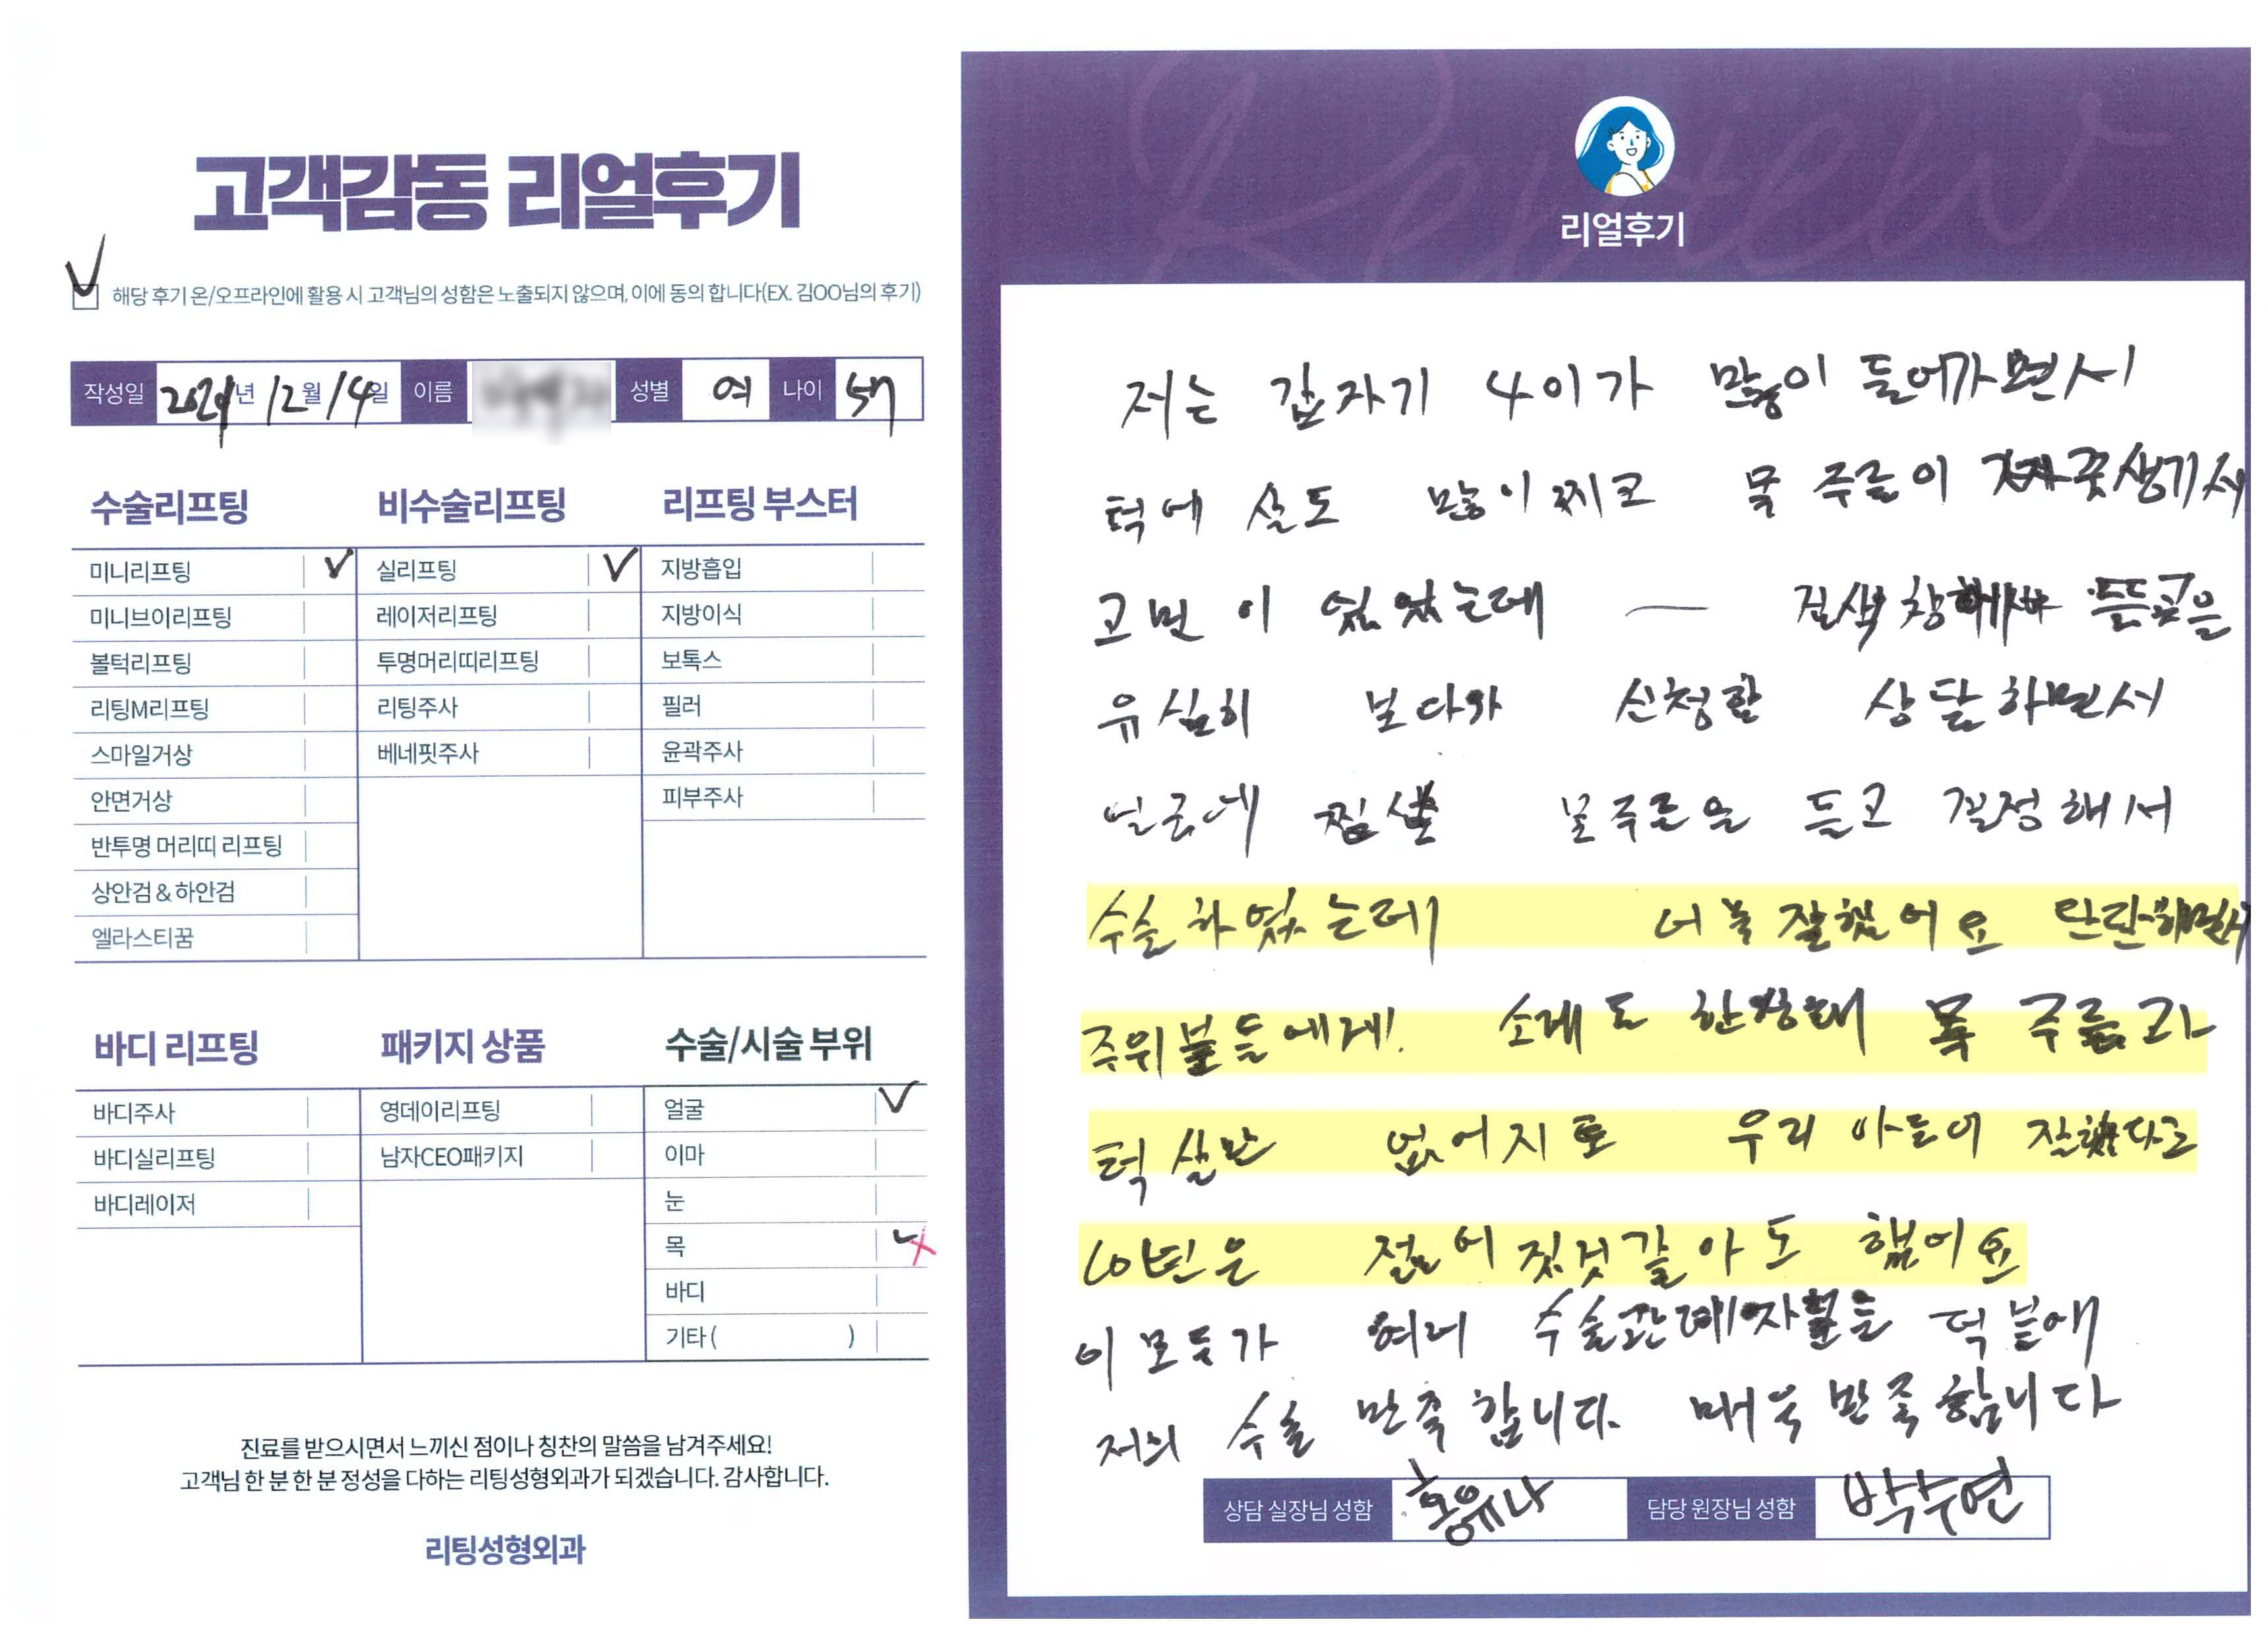 고객감동 리얼후기
해당 후기 온/오프라인에 활용 시 고객님의 성함은 노출되지 않으며, 이에 동의 합니다(EX. 김OO님의 후기)
작성일 2024년 12월 14일 이름 성별 여 나이 57
수술리프팅
미니리프팅
미니브이리프팅
볼턱리프팅
리팅M리프팅
스마일거상
안면거상
반투명 머리띠 리프팅
상안검 & 하안검
엘라스티꿈
비수술리프팅
실리프팅
레이저리프팅
투명머리띠리프팅
리팅주사
베네핏주사
리프팅 부스터
지방흡입
지방이식
보톡스
필러
윤곽주사
피부주사
바디 리프팅
바디주사
바디실리프팅
바디레이저
패키지 상품
영데이리프팅
남자CEO패키지
수술/시술 부위
얼굴
이마
눈
목
바디
기타 ( )
진료를 받으시면서 느끼신 점이나 칭찬의 말씀을 남겨주세요!
고객님 한 분 한 분 정성을 다하는 리팅성형외과가 되겠습니다. 감사합니다.
리팅성형외과
Review
리얼후기
저는 갑자기 4이가 많이 들어가면서
턱에 살도 많이 찌고 목 주름이 생기서
고민이 있었는데 — 검색창
유심히 보다가 신청함 상담하면서
듣고 결정해서
수술하였는데 너무 잘했어요
주위분들에게! 소개도 한상태 목 주름과
턱살만 없어지도 우리 아들이 잘했다고
10년은 젊어젓것갈아도 했어요
이 모두가 여러 수술관 턱분에
저의 수술 만족합니다. 매우 만족합니다
상담 실장님 성함 홍유나 담당 원장님 성함 박수연